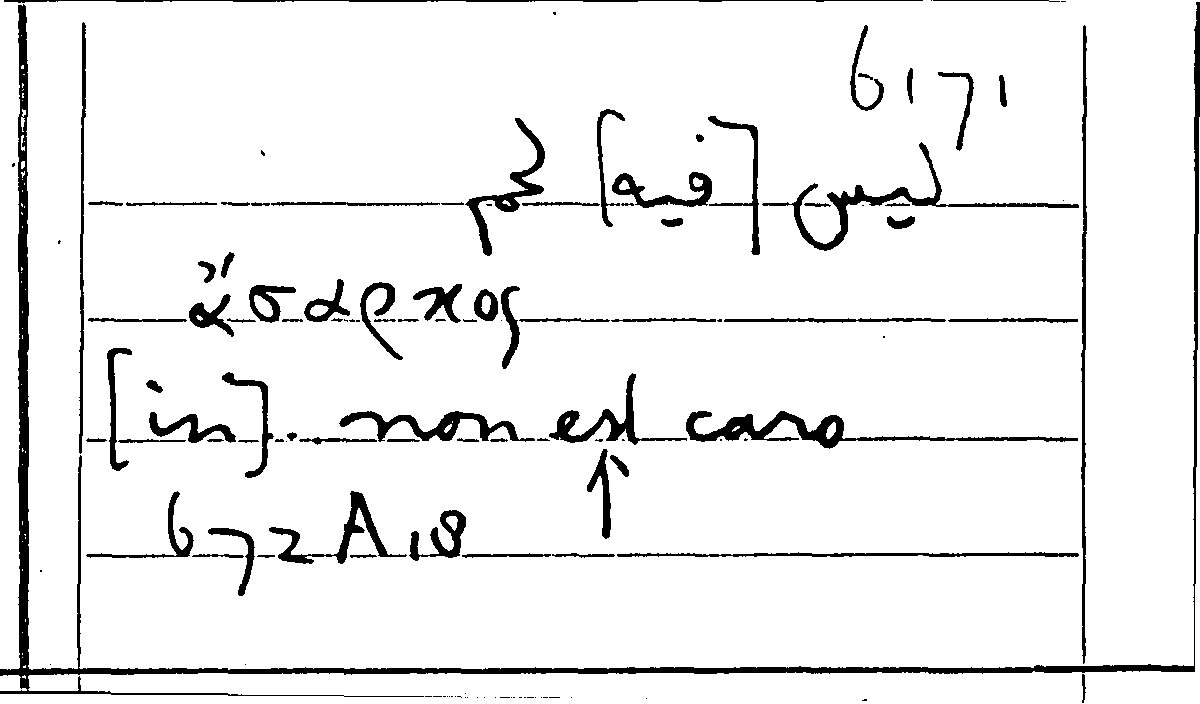 6171
ليس [فيه] لحم
ἄσαρκος
[in]... non est caro
↑
672 A 18